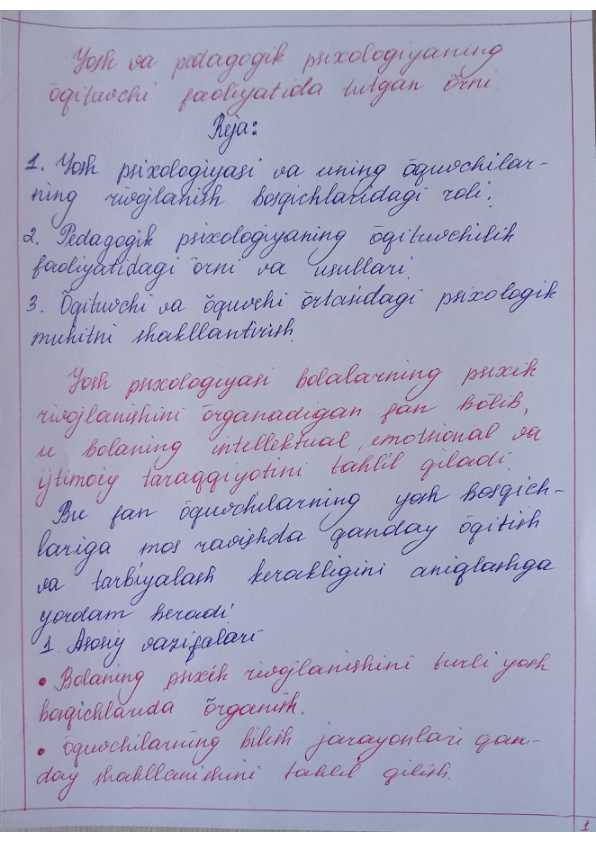 Yosh va pedagogik psixologiyaning
ōqituvchi faoliyatida tutgan ōrni.
Reja:
1. Yosh psixologiyasi va uning ōquvchilar-
ning rivojlanish bosqichlaridagi roli.
2. Pedagogik psixologiyaning ōqituvchilik
faoliyatidagi ōrni va usullari.
3. Ōqituvchi va ōquvchi ōrtasidagi psixologik
muhitni shakllantirish.
Yosh psixologiyasi bolalarning psixik
rivojlanishini ōrganadigan fan bōlib,
u bolaning intellektual, emotsional va
ijtimoiy taraqqiyotini tahlil qiladi.
Bu fan ōquvchilarning yosh bosqich-
lariga mos ravishda qanday ōqitish
va tarbiyalash kerakligini aniqlashga
yordam beradi.
1. Asosiy vazifalari
• Bolaning psixik rivojlanishini turli yosh
bosqichlarida ōrganish.
• Ōquvchilarning bilish jarayonlari qan-
day shakllanishini tahlil qilish.
1